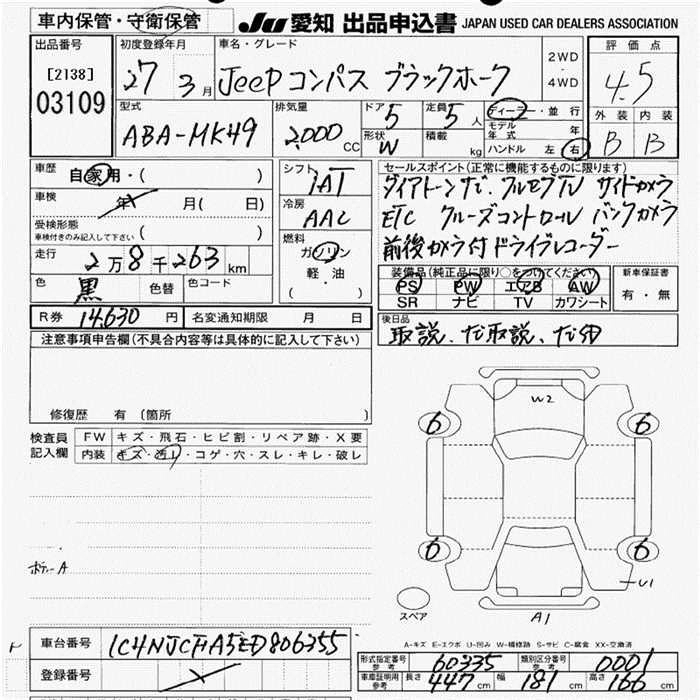 車内保管・守衛保管
JU 愛知 出品申込書 JAPAN USED CAR DEALERS ASSOCIATION
出品番号 初度登録年月 車名・グレード 2WD・4WD 評価点
[2138] 27 3月 Jeep コンパス ブラックホーク 4.5
03109
型式 排気量 ドア 5 定員 5人 ディーラー・並行 外装 内装
ABA-MK49 2,000 CC 形状 W 積載 kg モデル年式 年 B B
ハンドル 左 右
車歴 自家用・( ) シフト IAT セールスポイント(正常に機能するものに限ります)
車検 年 月( 日) 冷房 AAC ダイアトーンナビ. フルセグTV サイドカメラ
受検形態 車検付きのみ記入して下さい ( ) ETC クルーズコントロール バックカメラ
走行 2万8千263km 燃料 ガソリン 軽・油 ( ・ ) 前後カメラ付ドライブレコーダー
色 黒 色替 色コード 装備品(純正品に限り○をつけてください) 新車保証書
PS PW エアB AW 有・無
SR ナビ TV カワシート
R券 14,630 円 名変通知期限 月 日 後日品
注意事項申告欄(不具合内容等は具体的に記入して下さい) 取説、ナビ取説、ナビSD
修復歴 有 (箇所 )
検査員 FW キズ・飛石・ヒビ割・リペア跡・X要
記入欄 内装 キズ・汚レ・コゲ・穴・スレ・キレ・破レ
W2
6 6
6 6
ボデーA
U1
スペア A1
A-キズ E-エクボ U-凹み W-補修跡 S-サビ C-腐食 XX-交換済
車台番号 1C4NJCFA5ED806355
登録番号
形式指定番号 参考 60335 類別区分番号 参考 0001
車庫証明用 参考 長さ 447cm 幅 181cm 高さ 166cm